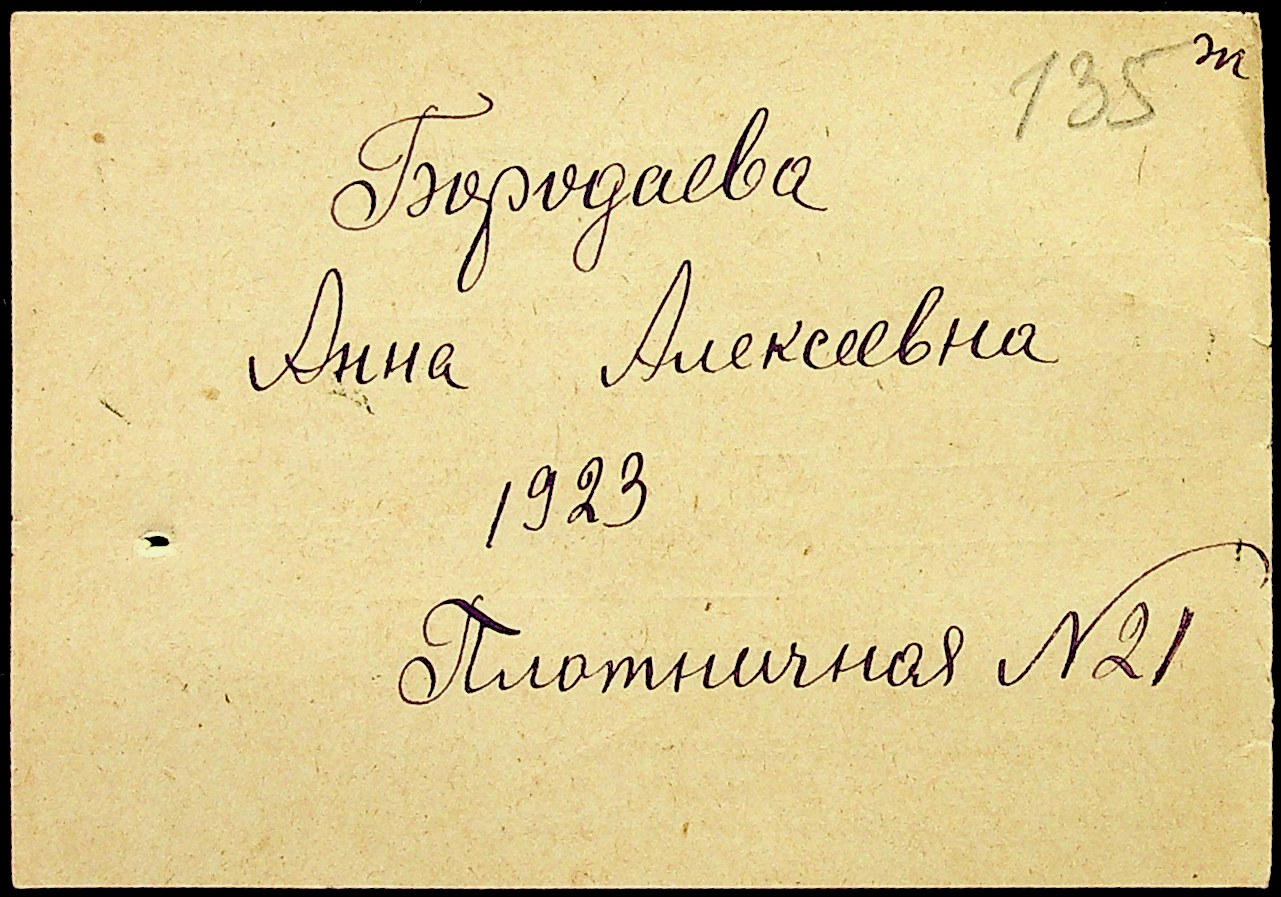 135 ж
Бородаева
Анна Алексеевна
1923
Плотничная №21